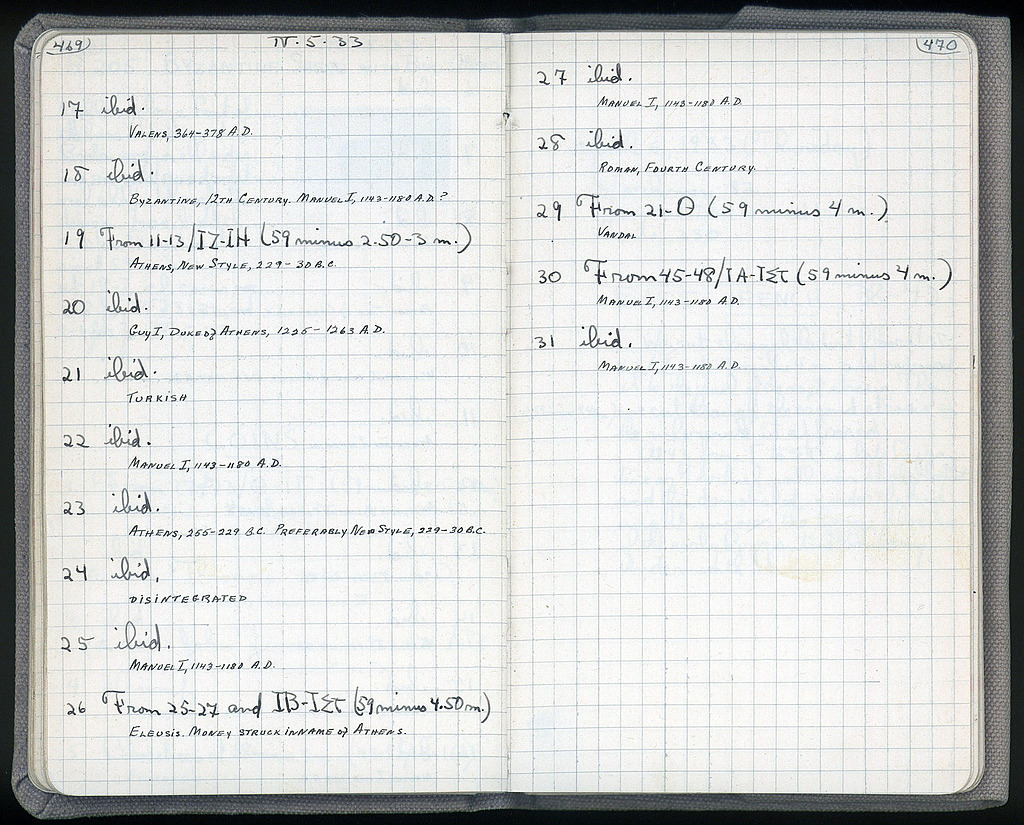 469
IV·5·33
17 ibid.
Valens, 364-378 A.D.
18 ibid.
Byzantine, 12th Century. Manuel I, 1143-1180 A.D.?
19 From 11-13/ΙΖ-ΙΗ (59 minus 2.50-3 m.)
Athens, New Style, 229-30 B.C.
20 ibid.
Guy I, Duke of Athens, 1225-1263 A.D.
21 ibid.
Turkish
22 ibid.
Manuel I, 1143-1180 A.D.
23 ibid.
Athens, 255-229 B.C. Preferably New Style, 229-30 B.C.
24 ibid.
Disintegrated
25 ibid.
Manuel I, 1143-1180 A.D.
26 From 25-27 and ΙΒ-ΙΣΤ (59 minus 4.50 m.)
Eleusis. Money struck in name of Athens.
470
27 ibid.
Manuel I, 1143-1180 A.D.
28 ibid.
Roman, Fourth Century.
29 From 21-Θ (59 minus 4 m.)
Vandal
30 From 45-48/ΙΑ-ΙΣΤ (59 minus 4 m.)
Manuel I, 1143-1180 A.D.
31 ibid.
Manuel I, 1143-1180 A.D.